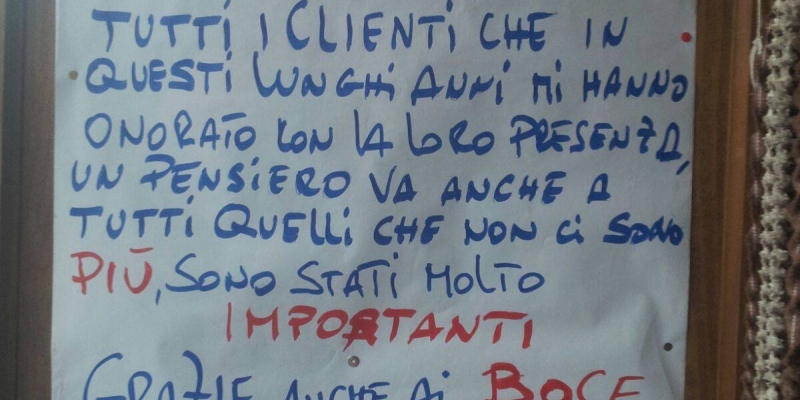 TUTTI I CLIENTI CHE IN
QUESTI LUNGHI ANNI MI HANNO
ONORATO CON LA LORO PRESENZA,
UN PENSIERO VA ANCHE A
TUTTI QUELLI CHE NON CI SONO
PIÙ, SONO STATI MOLTO
IMPORTANTI
GRAZIE ANCHE AI BOCE